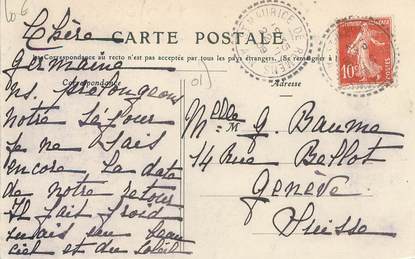 Chère
CARTE POSTALE
Germaine
La Correspondance au recto n'est pas acceptée par tous les pays étrangers. (Se renseigner à
Correspondance
Adresse
ns. prolongeons
notre séjour
je ne sais
encore la date
de notre retour
Il fait froid
mais un beau
ciel et du soleil
Mlle G. Baume
M
14 Rue Bellot
Genève
Suisse
10c
POSTES